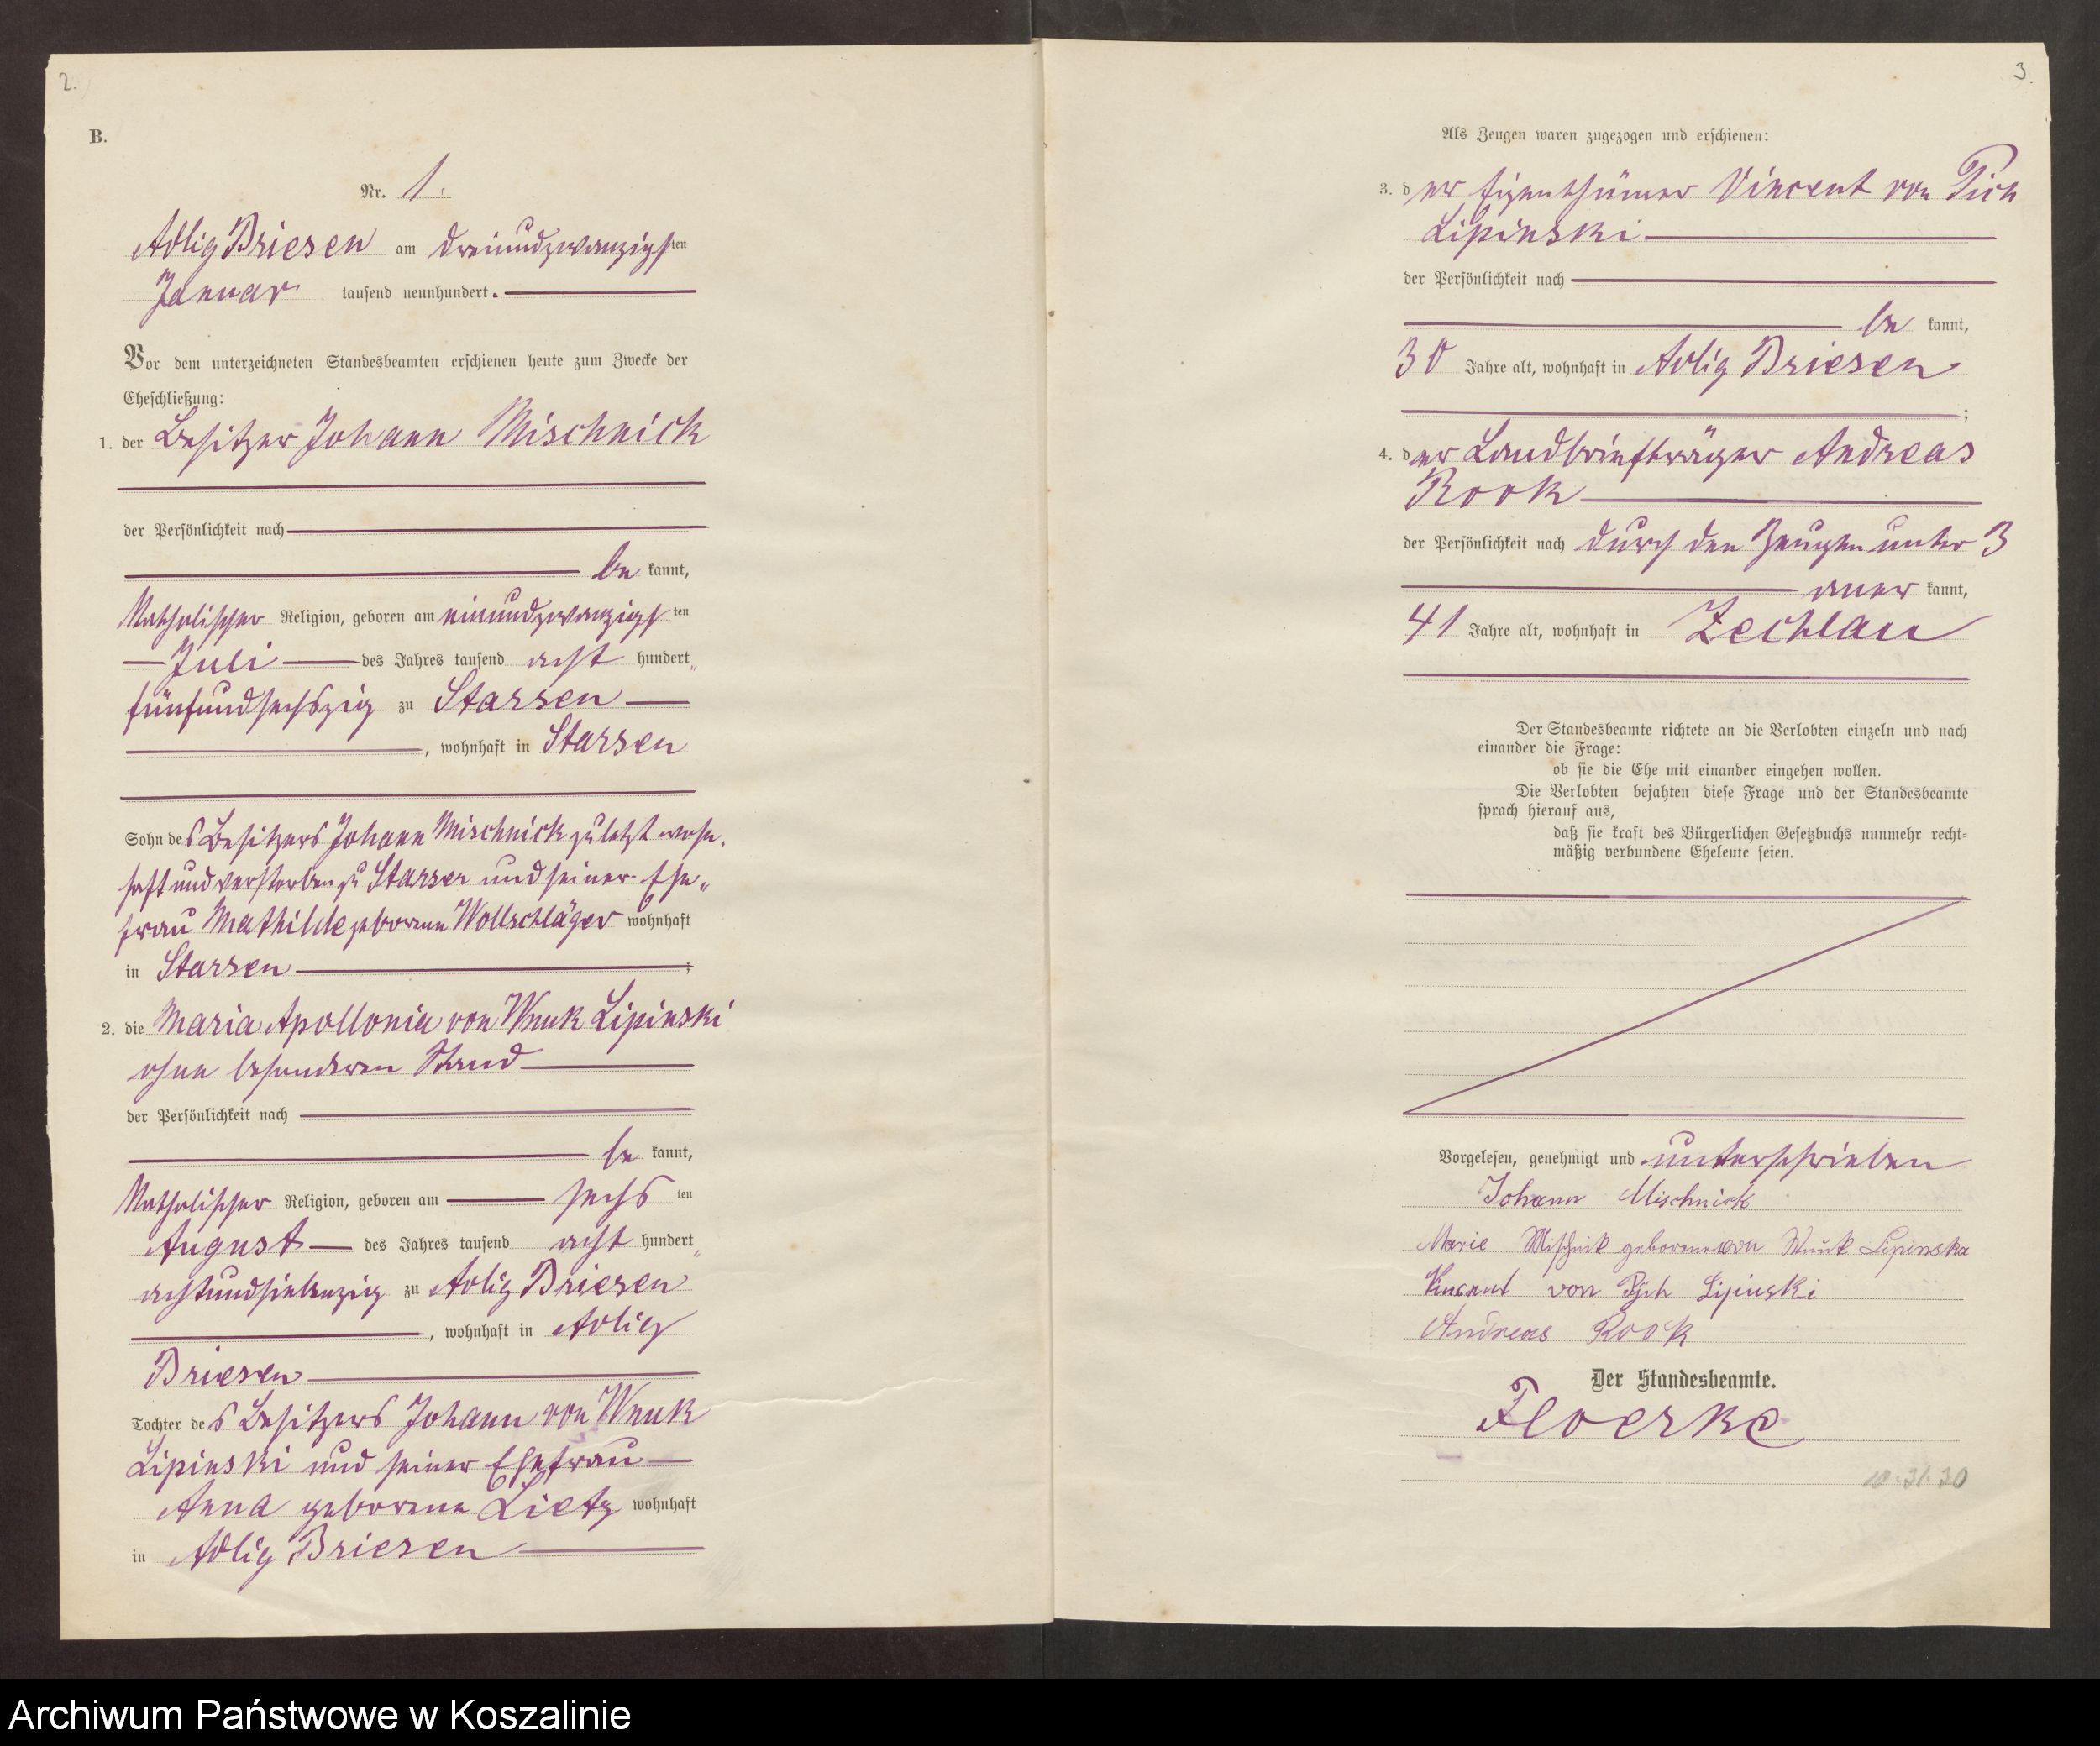 2.
B.
Nr. 1.
Adlig Briesen am dreiundzwanzigsten
Januar tausend neunhundert.
Vor dem unterzeichneten Standesbeamten erschienen heute zum Zwecke der
Eheschließung:
1. der Besitzer Johann Mischnick
der Persönlichkeit nach
be kannt,
Katholischer Religion, geboren am einundzwanzigsten
Juli des Jahres tausend acht hundert
fünfundsechszig zu Starsen
, wohnhaft in Starsen
Sohn des Besitzers Johann Mischnick zuletzt wohn-
haft und verstorben zu Starsen und seiner Ehe-
frau Mathilde geborene Wollschläger wohnhaft
in Starsen ;
2. die Maria Apollonia von Wnuk Lipinski
ohne besonderen Stand
der Persönlichkeit nach
be kannt,
Katholischer Religion, geboren am sechsten
August des Jahres tausend acht hundert
achtundsiebenzig zu Adlig Briesen
, wohnhaft in Adlig
Briesen
Tochter des Besitzers Johann von Wnuk
Lipinski und seiner Ehefrau
Anna geborene Lietz wohnhaft
in Adlig Briesen
3.
Als Zeugen waren zugezogen und erschienen:
3. der Eigenthümer Vincent von Pich
Lipinski
der Persönlichkeit nach
be kannt,
30 Jahre alt, wohnhaft in Adlig Briesen
;
4. der Landbriefträger Andreas
Rook
der Persönlichkeit nach durch den Zeugen unter 3
aner kannt,
41 Jahre alt, wohnhaft in Zechlau
Der Standesbeamte richtete an die Verlobten einzeln und nach
einander die Frage:
ob sie die Ehe mit einander eingehen wollen.
Die Verlobten bejahten diese Frage und der Standesbeamte
sprach hierauf aus,
daß sie kraft des Bürgerlichen Gesetzbuchs nunmehr recht-
mäßig verbundene Eheleute seien.
Vorgelesen, genehmigt und unterschrieben
Johann Mischnick
Marie Mischnik geborene von Wnuk Lipinska
Vincent von Pych Lipinski
Andreas Rook
Der Standesbeamte.
Floerke
10.31.30
Archiwum Państwowe w Koszalinie